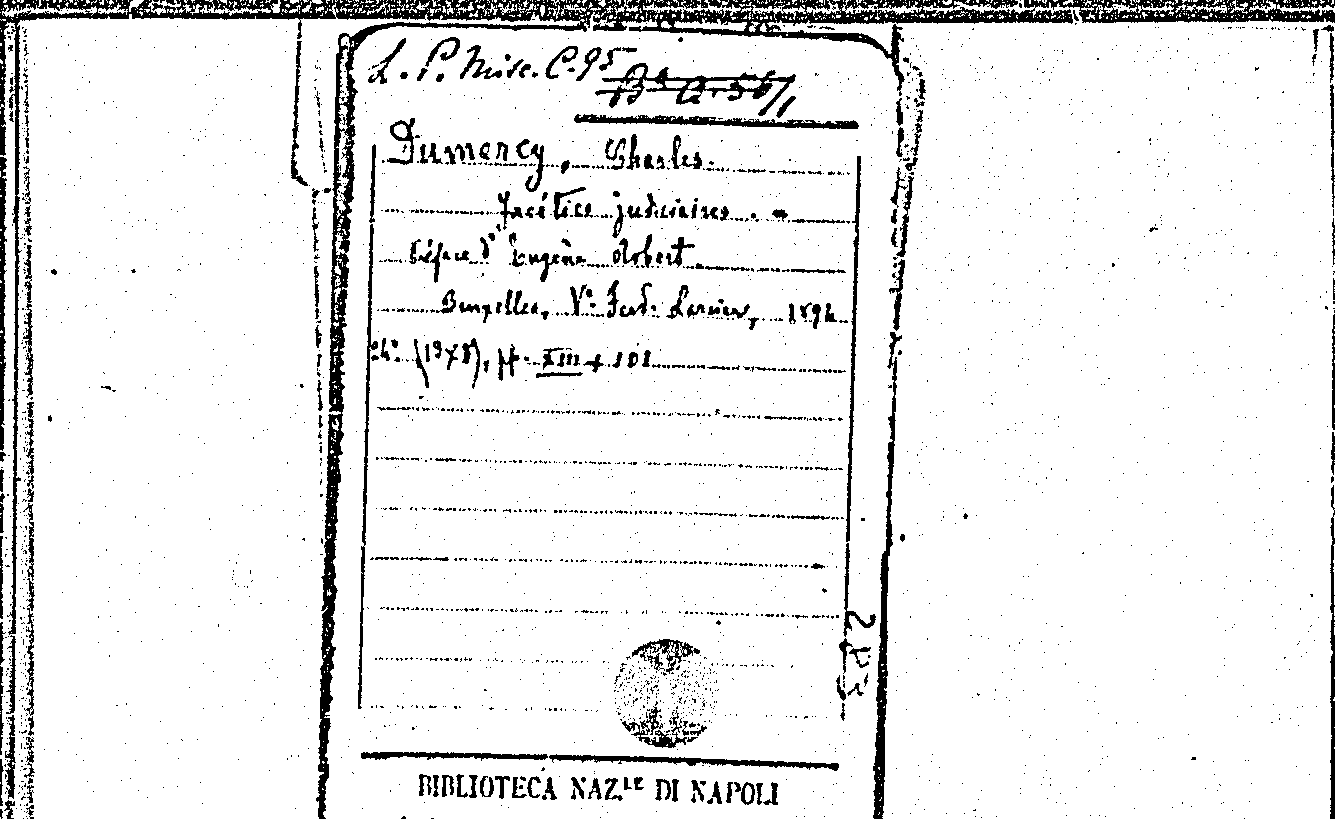 L. P. Misc. C. 95
Dumercy, Charles.
Facéties judiciaires. -
Préface d'Eugène Robert.
Bruxelles, Vᵉ Ferd. Larcier, 1894
(19x8), pp. XIII + 101
BIBLIOTECA NAZ.LE DI NAPOLI